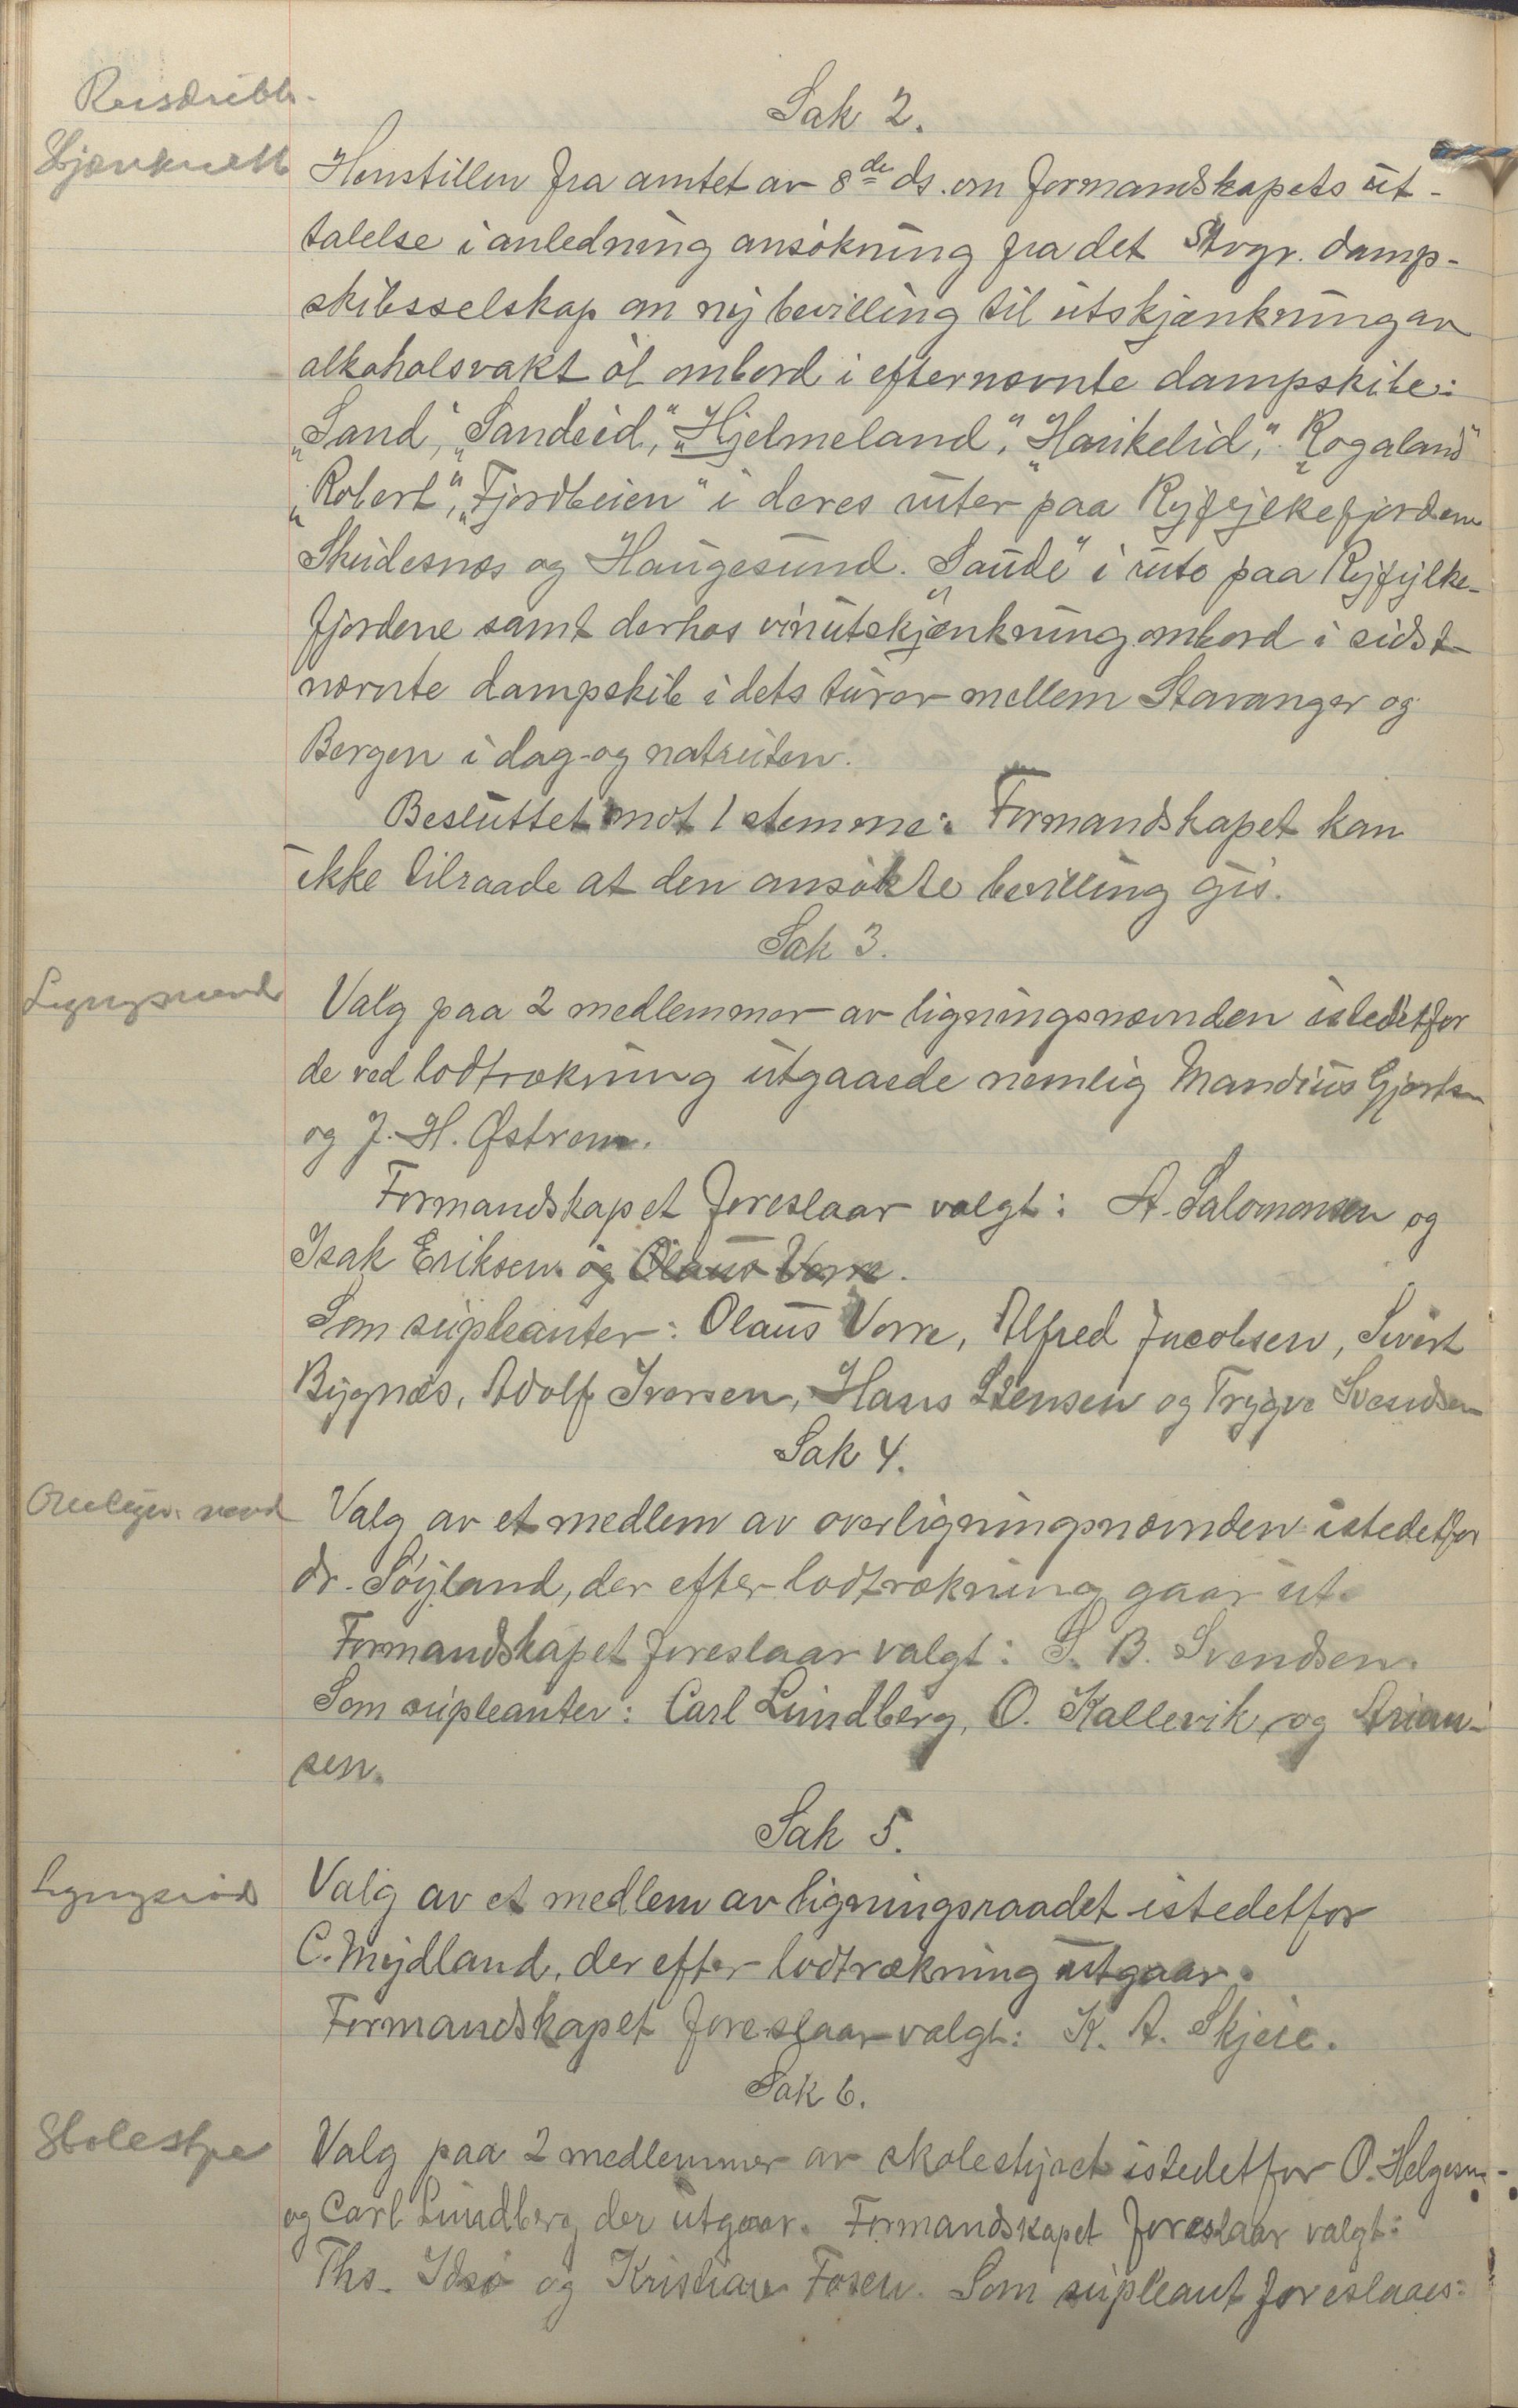 Rusdrikk-
Sak 2.
Skjænkerett
Henstillen fra amtet av 8de ds. om formandskapets ut-
talelse i anledning ansøkning fra det Stvgr. damp-
skibsselskap om ny bevilling til utskjænkning av
alkoholsvakt øl ombord i efternævnte dampskibe:
„Sand”, „Sandeid”, „Hjelmeland”, „Haukelid”, „Rogaland”
„Robert”, „Fjordbeien” i deres ruter paa Ryfylkefjordene
Skudesnæs og Haugesund. „Saude” i rute paa Ryfylke-
fjordene samt derhos vinutskjænkning ombord i sidst-
nævnte dampskib i dets turer mellem Stavanger og
Bergen i dag- og natruten.
Besluttet mot 1 stemme: Formandskapet kan
ikke tilraade at den ansøkte bevilling gis.
Sak 3.
Ligngsnævnd
Valg paa 2 medlemmer av ligningsnævnden istedetfor
de ved lodtrækning utgaaede nemlig Mandius Gjertsen
og J. H. Østrem.
Formandskapet foreslaar valgt: A. Salomonsen og
Isak Eriksen. og Olaus Vorre.
Som supleanter: Olaus Vorre, Alfred Jacobsen, Sivert
Bygnæs, Adolf Iversen, Hans Stensen og Trygve Svendsen
Sak 4.
Overlign. nævnd
Valg av et medlem av overligningsnævnden istedetfor
dr. Søyland, der efter lodtrækning gaar ut.
Formandskapet foreslaar valgt: S. B. Svendsen.
Som supleanter: Carl Lundberg, O. Kallevik og Arian-
sen.
Sak 5.
Ligngsråd
Valg av et medlem av ligningsraadet istedetfor
C. Mydland, der efter lodtrækning utgaar.
Formandskapet foreslaar valgt: K. A. Skjeie.
Sak 6.
Skolestyre
Valg paa 2 medlemmer av skolestyret istedetfor O. Helgesen
og Carl Lundberg der utgaar. Formandskapet foreslaar valgt:
Ths. Idsø og Kristian Fosen. Som supleant foreslaaes: